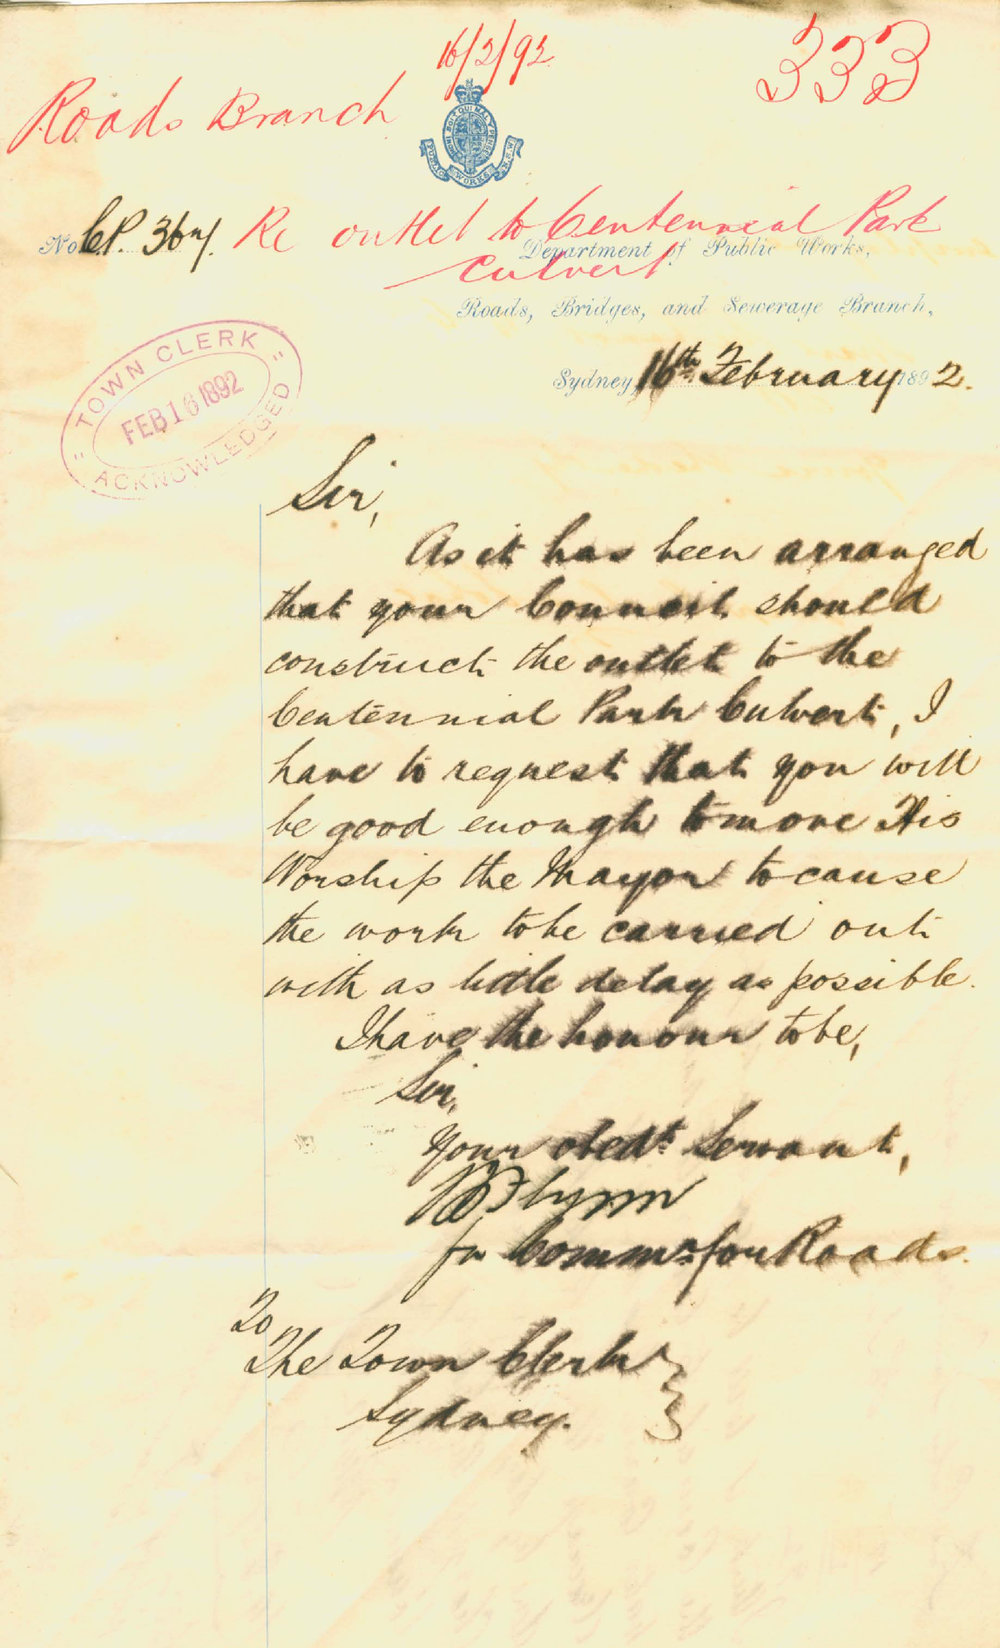 16/2/92
333
Roads Branch
PUBLIC WORKS N.S.W.
No C.P. 36
Re outlet to Centennial Park
Culvert
Department of Public Works,
Roads, Bridges, and Sewerage Branch,
Sydney 16th February 1892.
"TOWN CLERK"
FEB 16 1892
ACKNOWLEDGED
Sir,
As it has been arranged
that your Council should
construct the outlet to the
Centennial Park Culvert, I
have to request that you will
be good enough to move His
Worship the Mayor to cause
the work to be carried out
with as little delay as possible.
I have the honour to be,
Sir,
Your obedt Servant,
Flynn
for Commr for Roads.
To
The Town Clerk
Sydney.